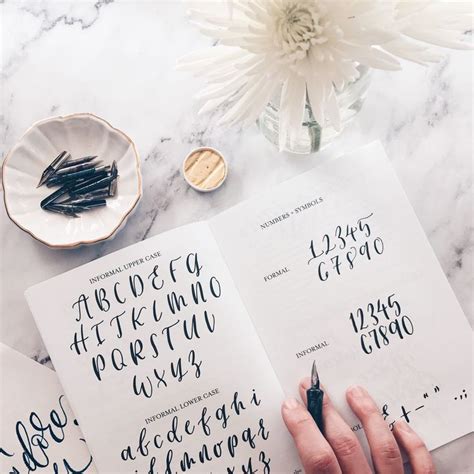 INFORMAL UPPER CASE
ABCDEFG
HIJKLMNO
PQRSTUV
WXYZ
INFORMAL LOWER CASE
abcdefg
NUMBERS + SYMBOLS
FORMAL
12345
67890
INFORMAL
12345
67890